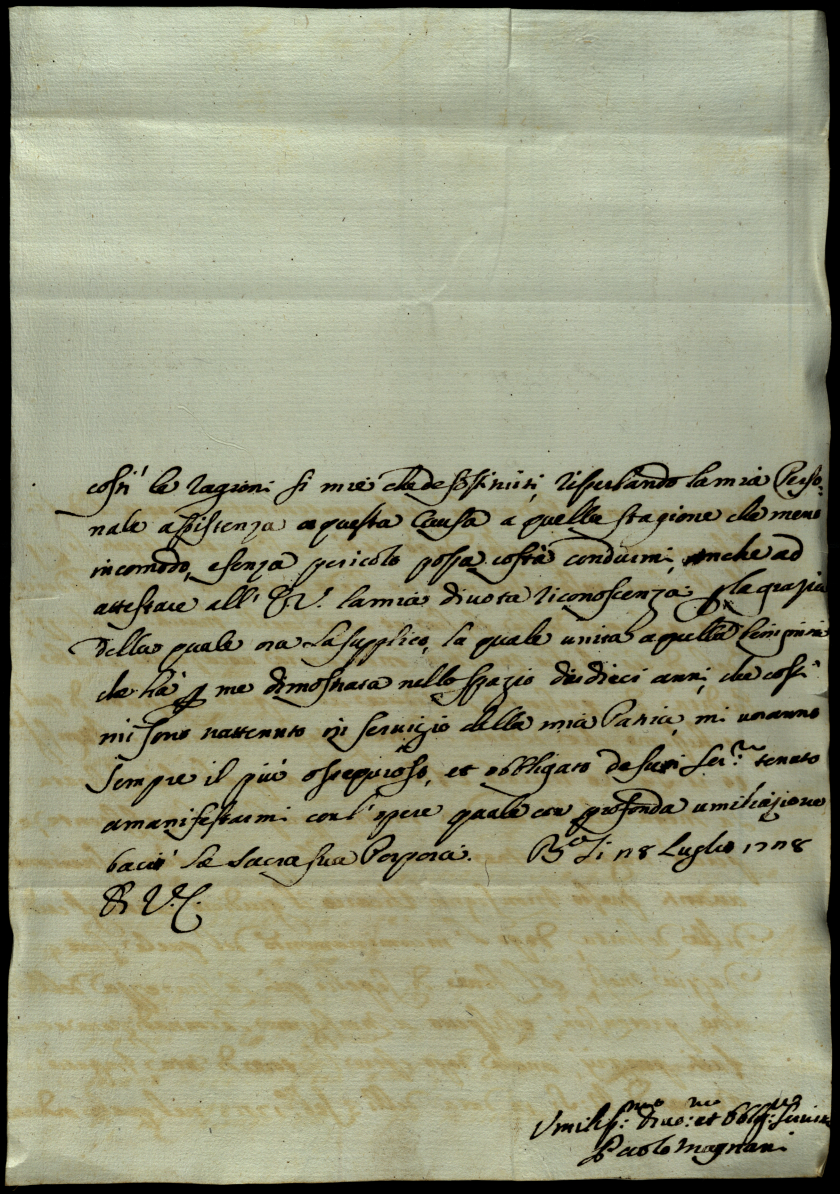 costì le ragioni sì mie che de sosti miei, rispettando la mia Perso-
nale assistenza a questa Causa a quella stagione che meno
incomodo, e senza pericolo possa costà condurmi, anche ad
attestare all' E. V. la mia divota riconoscenza p la grazia
della quale ora la supplico, la quale unita a quella benignità
che hà p me dimostrata nello spazio de dieci anni, che costì
mi sono trattenuto in servizio della mia Patria, mi voranno
sempre il più ossequioso, et obbligato de suoi Ser.ri tenuto
a manifestarmi con l'opere quale con profonda umiliazione
bacio la sacra sua Porpora. B.a li 18 Luglio 1718
D. V. E.
Umiliss.mo divo.mo et Obblig.mo Servitre
Paolo Magnani